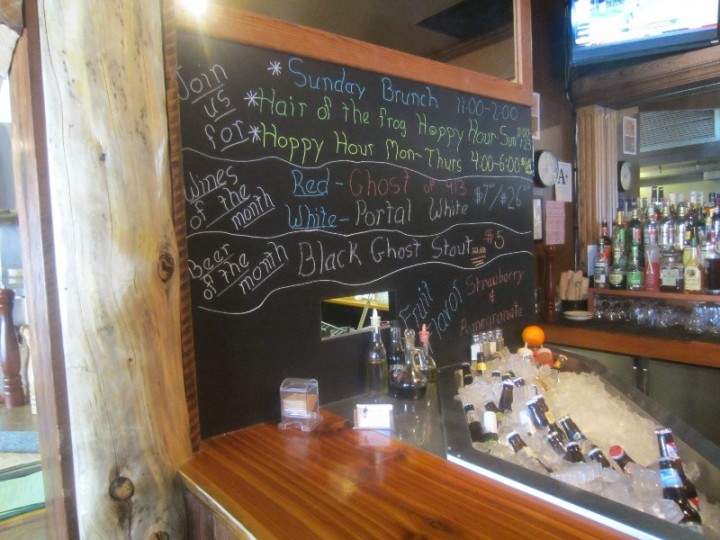 Join us for
* Sunday Brunch 11:00-2:00
* Hair of the frog Hoppy Hour Sun
* Hoppy Hour Mon-Thurs 4:00-6:00
Wines of the month
Red - Ghost of 413 $7/$26
White - Portal White
Beer of the month
Black Ghost Stout $5
Fruit Flavor
Strawberry
&
Pomegranate
A